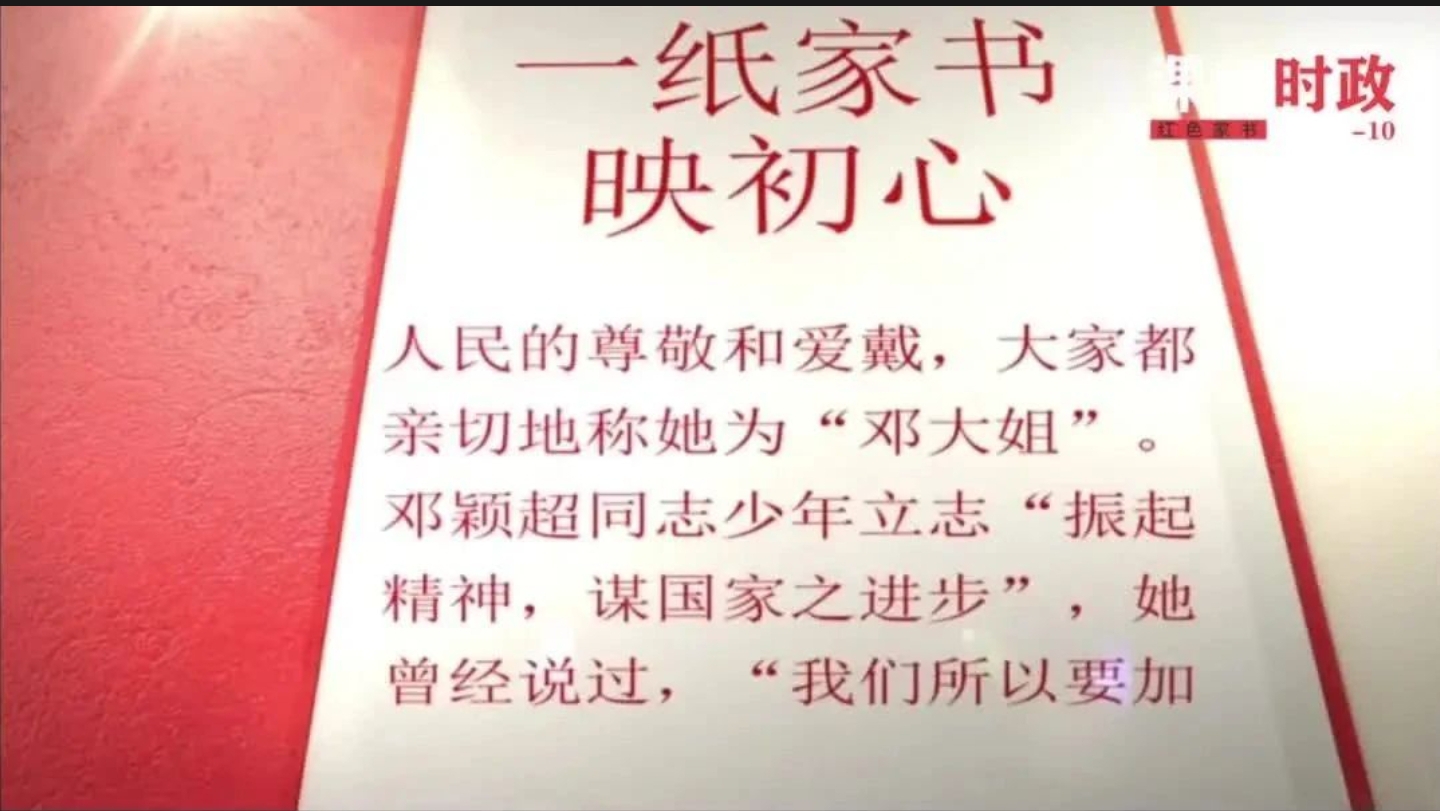 一纸家书
映初心
时政
红色家书
-10
人民的尊敬和爱戴，大家都
亲切地称她为“邓大姐”。
邓颖超同志少年立志“振起
精神，谋国家之进步”，她
曾经说过，“我们所以要加